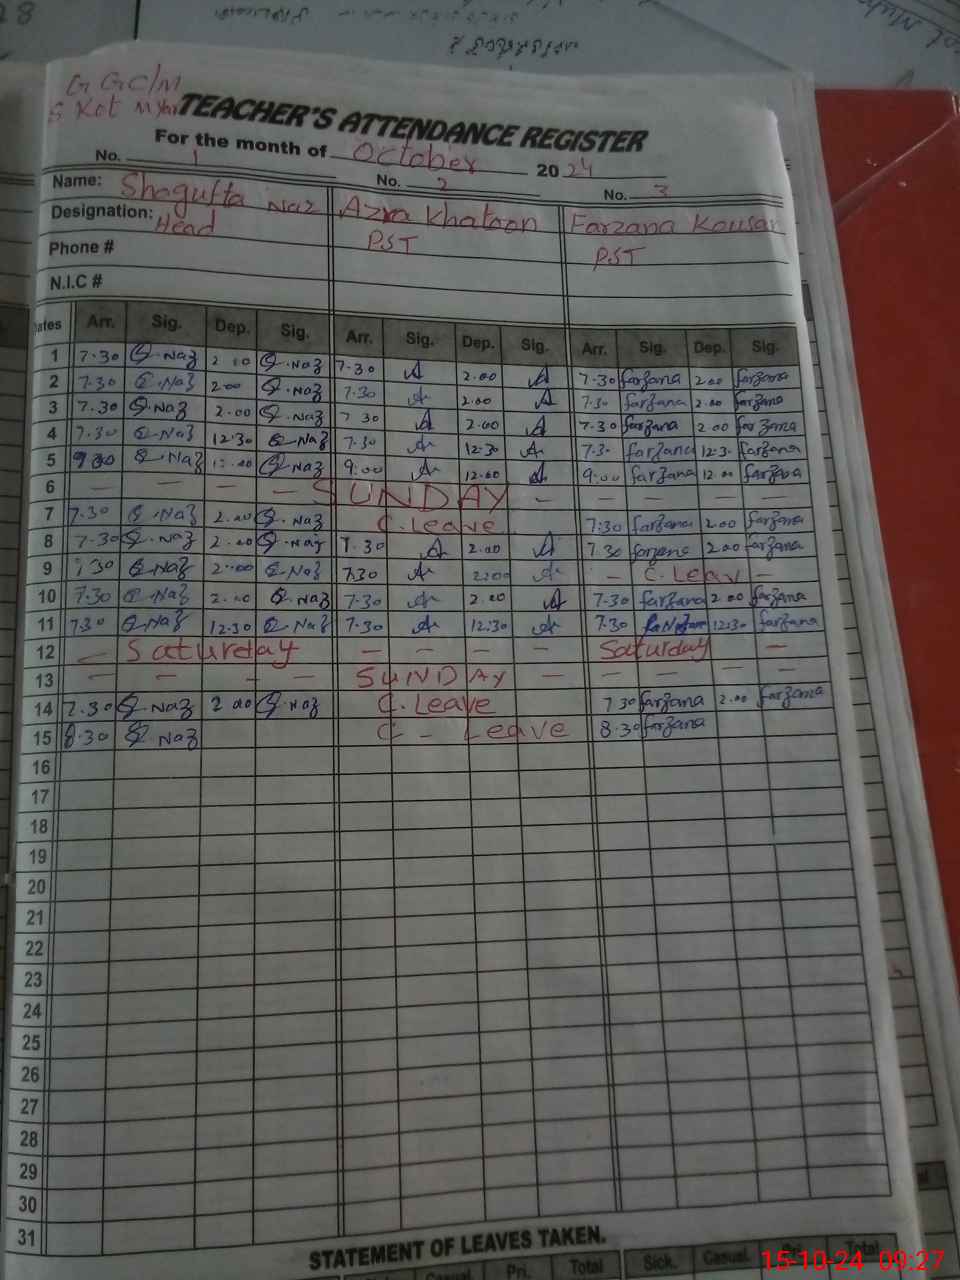 G G C/M
S Kot
TEACHER'S ATTENDANCE REGISTER
For the month of October 2024
No. 1 No. 2 No. 3
Name: Shagufta Naz Azra Khatoon Farzana Kousar
Designation: Head PST PST
Phone #
N.I.C #
Dates Arr. Sig. Dep. Sig. Arr. Sig. Dep. Sig. Arr. Sig. Dep. Sig.
1 7.30 S.Naz 2.00 S.Naz 7.30 A 2.00 A 7.30 farzana 2.00 farzana
2 7.30 S.Naz 2.00 S.Naz 7.30 A 2.00 A 7.30 farzana 2.00 farzana
3 7.30 S.Naz 2.00 S.Naz 7.30 A 2.00 A 7.30 farzana 2.00 farzana
4 7.30 S.Naz 12.30 S.Naz 7.30 A 12.30 A 7.3- farzana 12.3- farzana
5 S.Naz S.Naz 9:00 A 12.00 A 9.00 farzana 12.00 farzana
6 — — — — SUNDAY — — — — —
7 7.30 S.Naz 2.00 S.Naz C.Leave 7:30 farzana 2.00 farzana
8 7.30 S.Naz 2.00 S.Naz 7.30 A 2.00 A 7.30 farzana 2.00 farzana
9 7.30 S.Naz 2.00 S.Naz 7.30 A 2:00 A — C.Leav —
10 7.30 S.Naz 2.00 S.Naz 7.30 A 2.00 A 7.30 farzana 2.00 farzana
11 7.30 S.Naz 12.30 S.Naz 7.30 A 12:30 A 7.30 12:30 farzana
12 — Saturday — — — — Saturday —
13 — — — — SUNDAY — — — — —
14 7.30 S.Naz 2.00 S.Naz C.Leave 7.30 farzana 2.00 farzana
15 8.30 S.Naz C - Leave 8.30 farzana
16
17
18
19
20
21
22
23
24
25
26
27
28
29
30
31
STATEMENT OF LEAVES TAKEN.
Sick. Casual Pri. Total Sick. Casual. Pri. Total
15-10-24 09:27